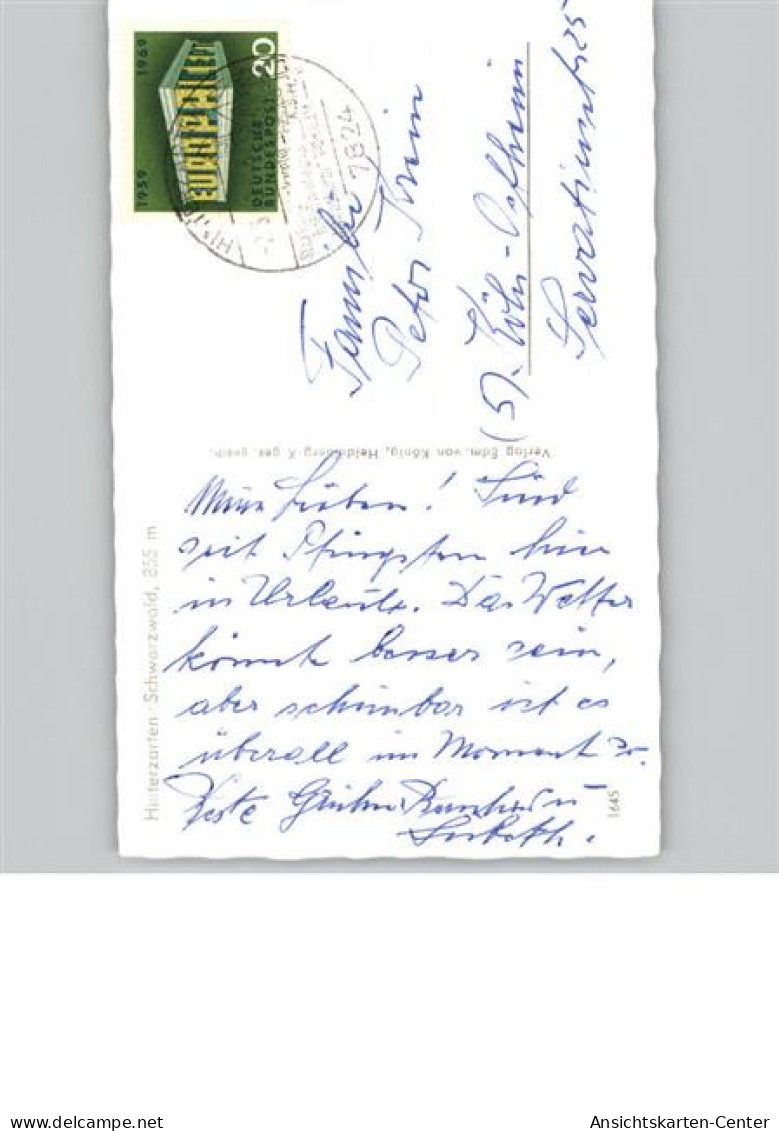 1959 1969
EUROPA CEPT
DEUTSCHE
BUNDESPOST
20
7824
Familie
Peter
(5). Köln-Ostheim
Servatiusstr. 25
Verlag Edm. von König, Heidelberg X ges. gesch.
Hinterzarten · Schwarzwald, 885 m
Meine Lieben! Sind
seit Pfingsten hier
in Urlaub. Das Wetter
könnte besser sein,
aber scheinbar ist es
überall im Moment so.
Beste Grüße
1645
delcampe.net
Ansichtskarten-Center